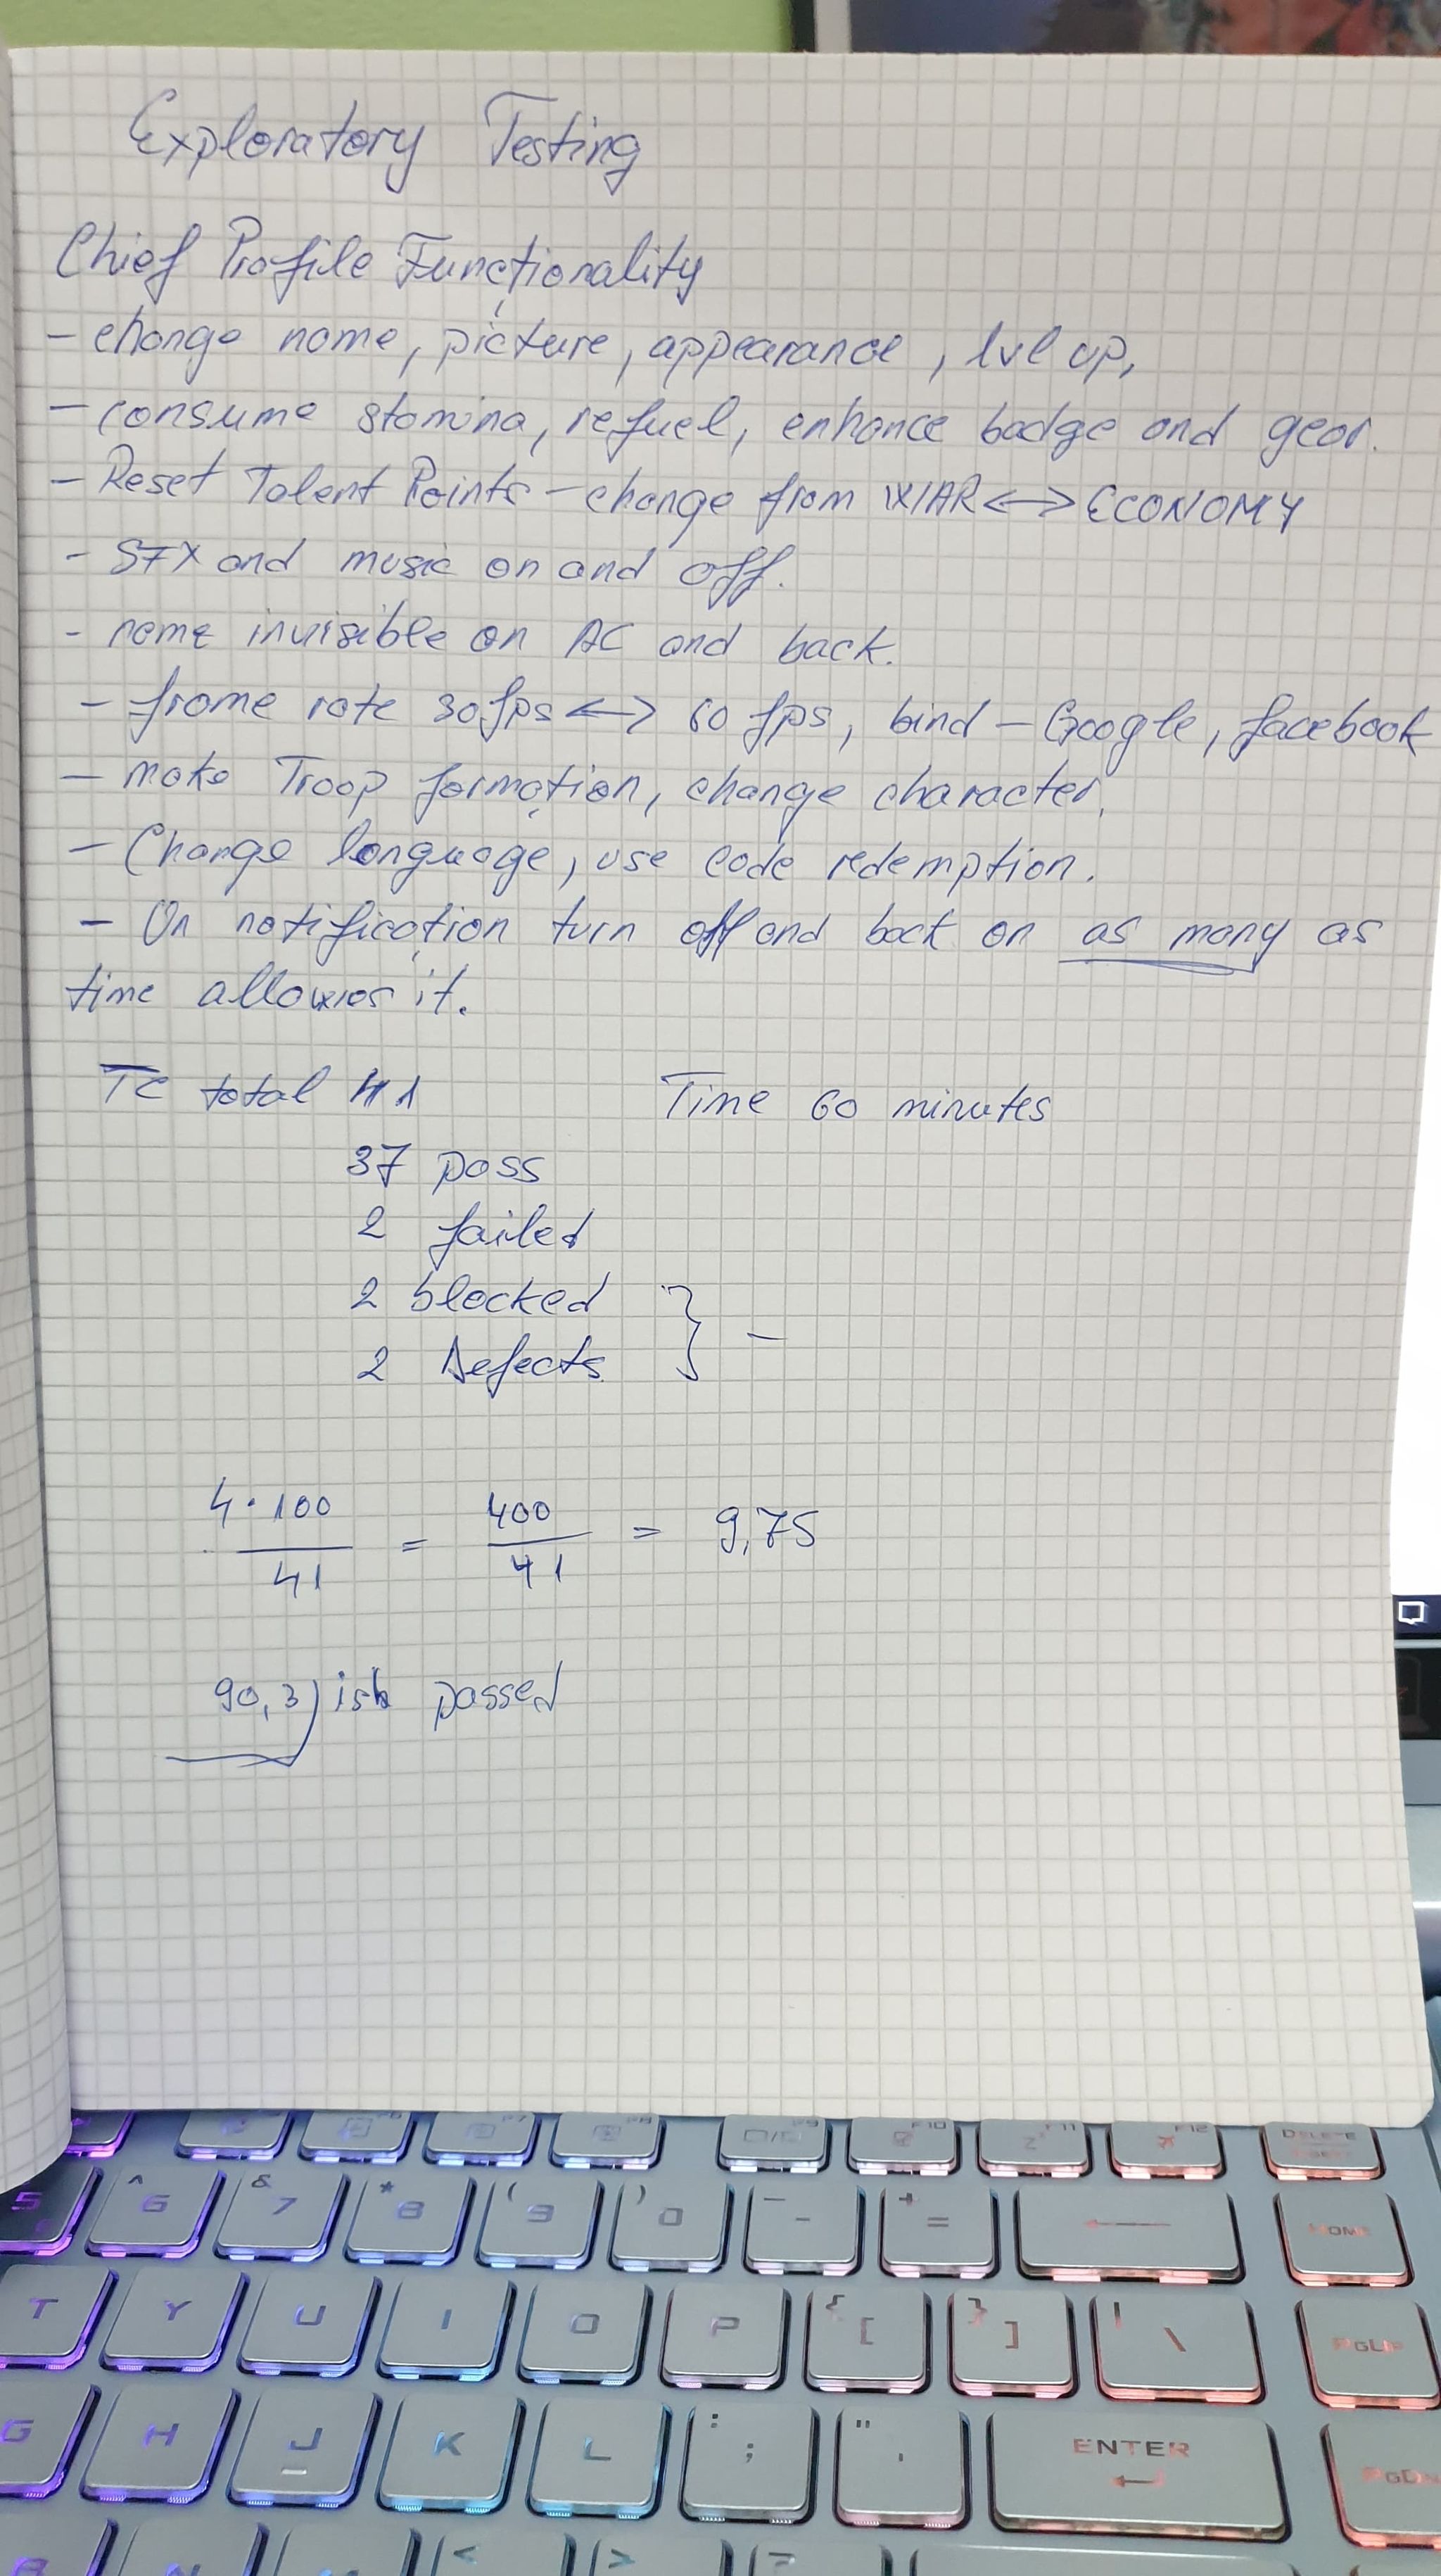 Exploratory Testing
Chief Profile Functionality
- change name, picture, appearance, lvl up,
- consume stamina, refuel, enhance badge and gear.
- Reset Talent Points - change from WAR <-> ECONOMY
- SFX and music on and off.
- name invisible on AC and back.
- frame rate 30fps <-> 60 fps, bind - Google, facebook
- make Troop formation, change character,
- Change language, use code redemption.
- On notification turn off and back on as many as
time allows it.
TC total 41 Time 60 minutes
37 pass
2 failed
2 blocked
2 Defects } -
4·100 / 41 = 400 / 41 = 9,75
90,3) ish passed
5 ^ 6 & 7 * 8 ( 9 ) 0 - + =
HOME
T Y U I O P { [ } ] | \
PGUP
G H J K L : ; " '
ENTER
PGDN
< > ?
F10 F11 F12 DELETE